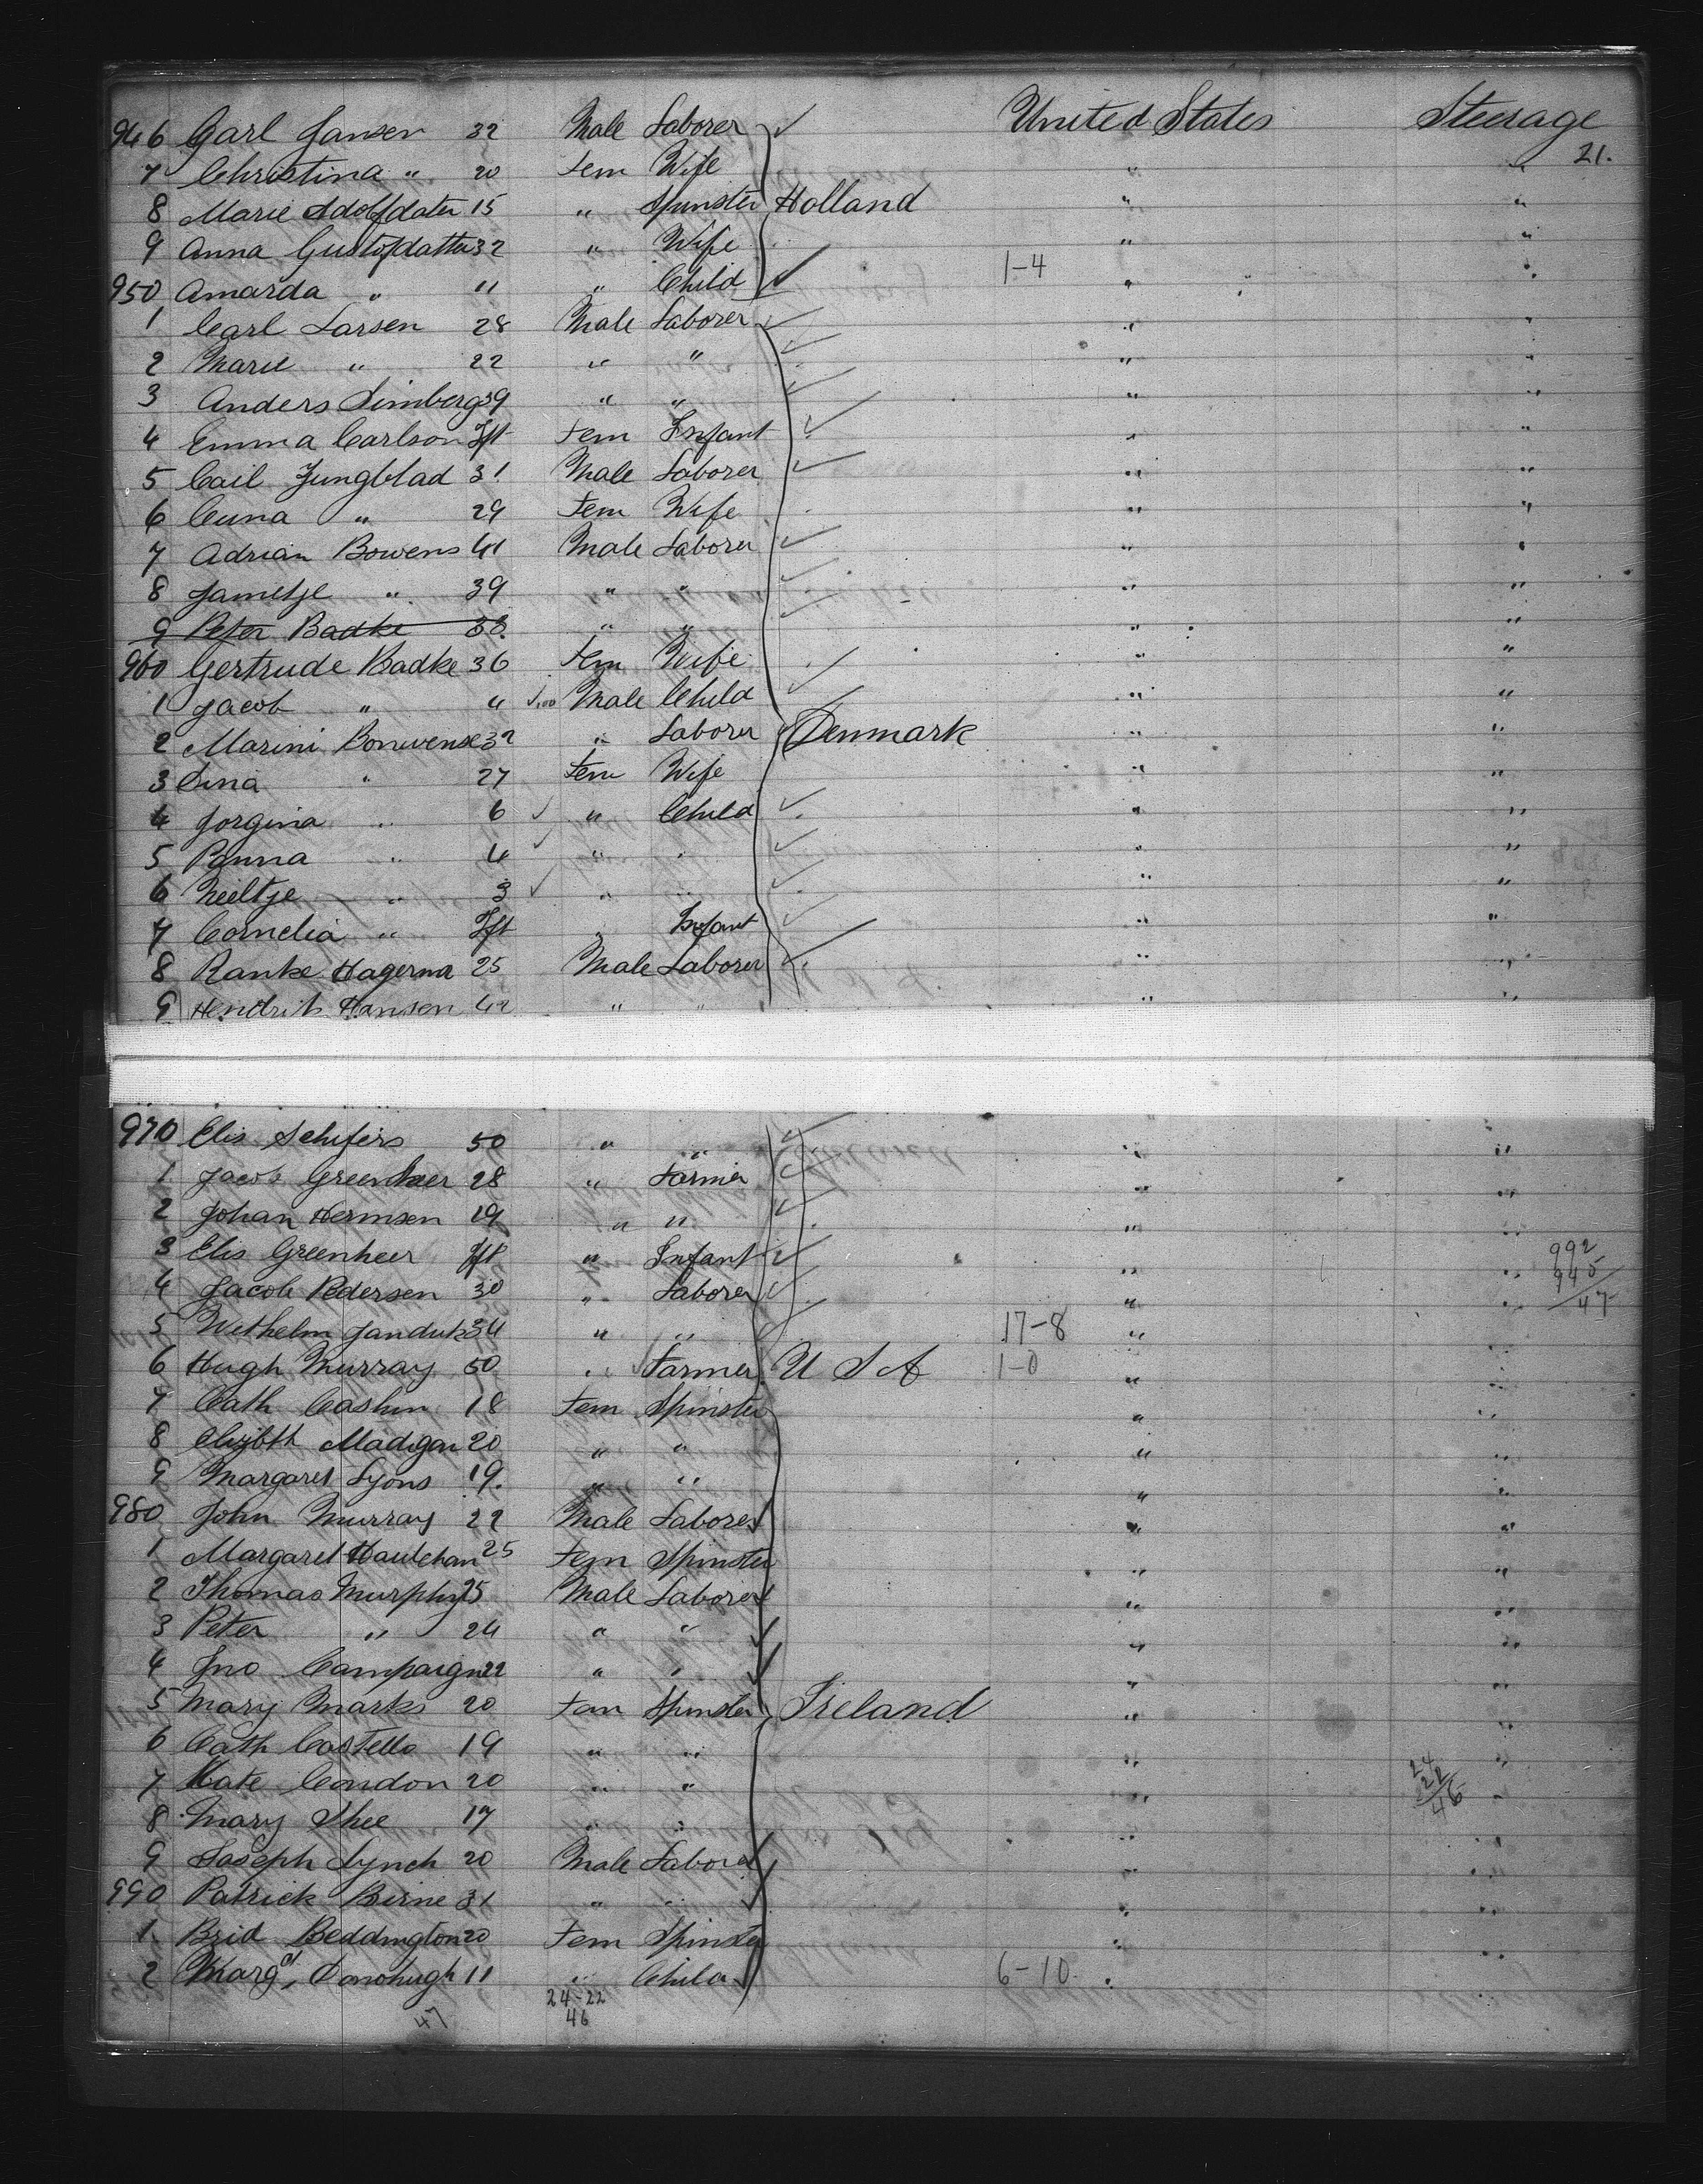 946 Carl Jansen 32 Male Laborer United States Steerage
21.
7 Christina " 20 Fem Wife " "
8 Marie Adolfdater 15 " Spinster Holland " "
9 Anna Gustofdatter 32 " Wife " "
950 Amarda " 11 " Child 1-4 " "
1 Carl Larsen 28 Male Laborer " "
2 Marie " 22 " " " "
3 Anders Limberg 39 " " " "
4 Emma Carlson Ift Fem Infant " "
5 Cail Jungblad 31 Male Laborer " "
6 Cuna " 29 Fem Wife " "
7 Adrian Bowens 41 Male Laborer " "
8 Jametje " 39 " " " "
9 Peter Badke 38 " " " "
960 Gertrude Badke 36 Fem Wife " "
1 Jacob " 11 Male Child " "
2 Marini Bonwense 32 " Laborer Denmark " "
3 Lina " 27 Fem Wife " "
4 Jorgina " 6 " Child " "
5 Panna " 4 " " " "
6 Neeltje " 3 " " " "
7 Cornelia " Ift " Infant " "
8 Ranke Hagerma 25 Male Laborer " "
9 Hendrik Hansen 42 " " " "
970 Elis Schifers 50 " " " "
1 Jacob Greenheer 28 " Farmer " "
2 Johan Hermsen 19 " " " "
3 Elis Greenheer Ift " Infant " " 992
4 Jacob Pedersen 30 " Laborer " " 945
47
5 Wethelm Janduk 34 " " 17-8 "
6 Hugh Murray 50 " Farmer U S A 1-0 " "
7 Cath Cashin 18 Fem Spinster " "
8 Elizbth Madigan 20 " " " "
9 Margaret Lyons 19. " " " "
980 John Murray 22 Male Laborer " "
1 Margaret Haulehan 25 Fem Spinster " "
2 Thomas Murphy 25 Male Laborer " "
3 Peter " 24 " " " "
4 Jno Campaign 22 " " " "
5 Mary Marks 20 Fem Spinster Ireland " "
6 Cath Costello 19 " " " "
7 Kate Condon 20 " " " 24 "
22
46
8 Mary Shee 17 " " " "
9 Joseph Lynch 20 Male Laborer " "
990 Patrick Birne 31 " " " "
1 Brid Beddington 20 Fem Spinster " "
2 Margt, Donohugh 11 " Child 6-10 " "
24-22
47 46